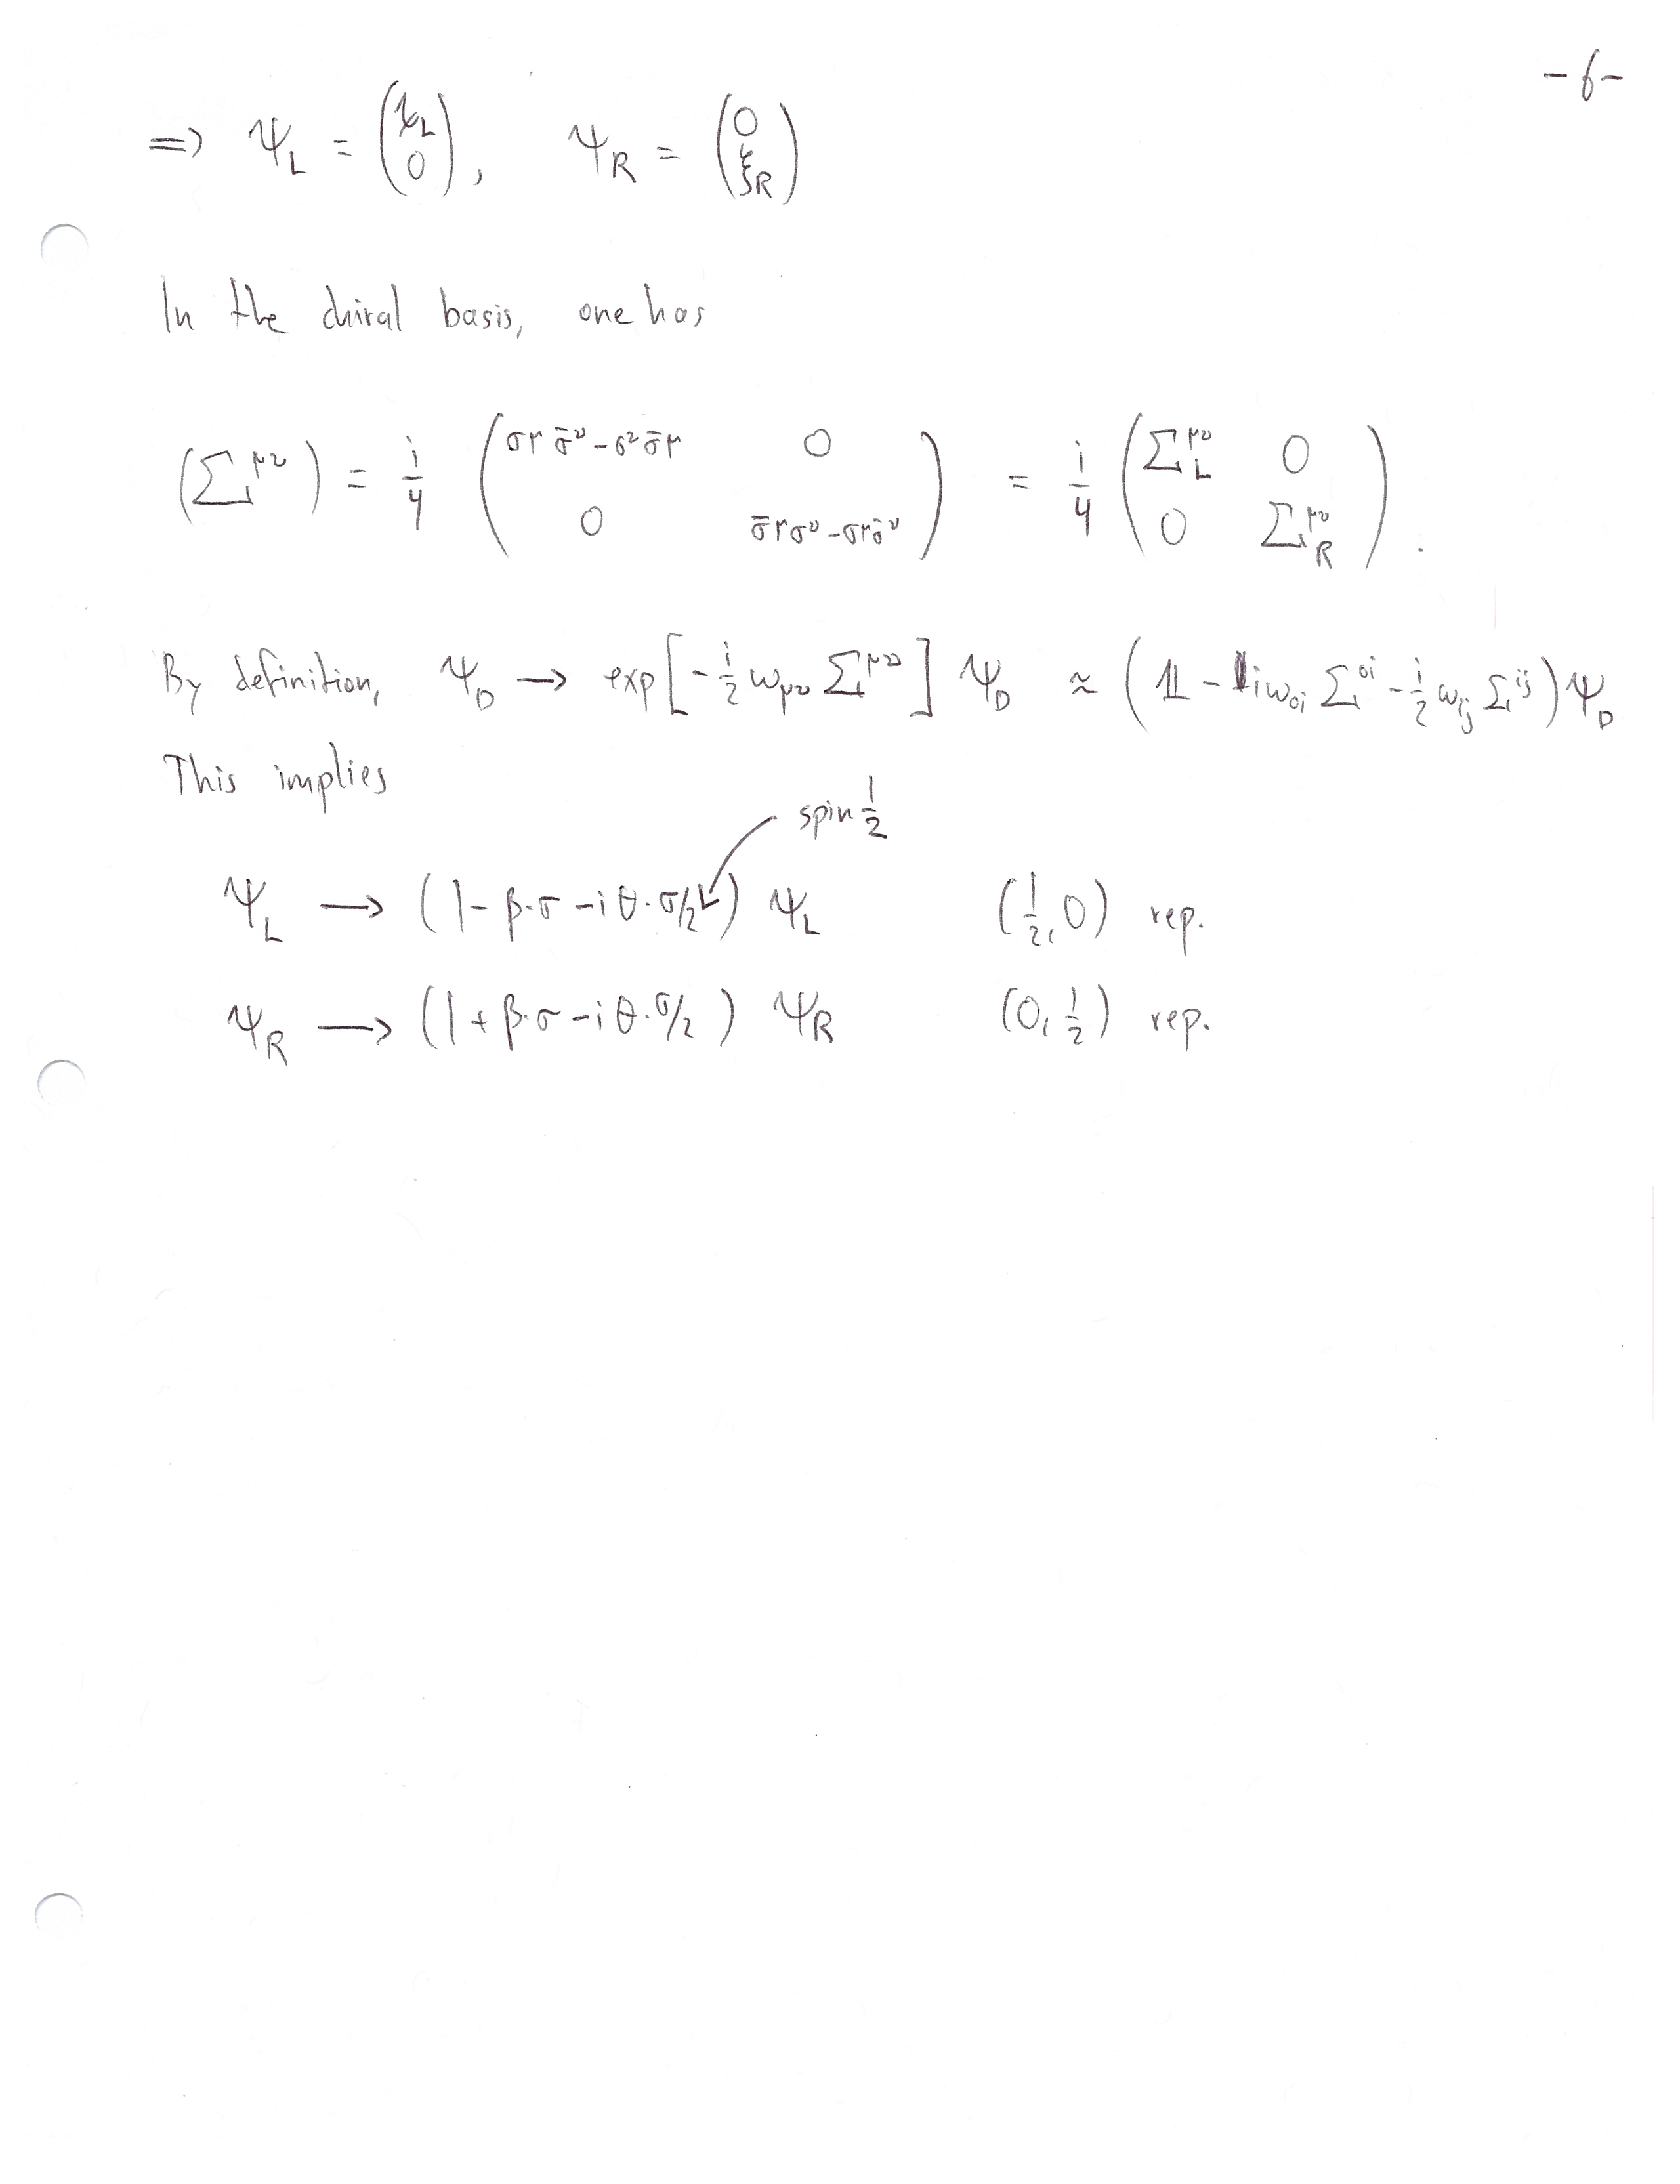 -6-
⇒ Ψ_L = (χ_L 0), Ψ_R = (0 ξ_R)
In the chiral basis, one has
(Σ^{μν}) = i/4 (σ^μ σ̄^ν - σ^ν σ̄^μ 0 0 σ̄^μ σ^ν - σ^μ σ̄^ν) = i/4 (Σ_L^{μν} 0 0 Σ_R^{μν}).
By definition, Ψ_D → exp[-i/2 ω_{μν} Σ^{μν}] Ψ_D ≈ (𝟙 - iω_{0i} Σ^{0i} - i/2 ω_{ij} Σ^{ij}) Ψ_D
This implies
spin 1/2
Ψ_L → (1 - β·σ - iθ·σ/2) Ψ_L (1/2, 0) rep.
Ψ_R → (1 + β·σ - iθ·σ/2) Ψ_R (0, 1/2) rep.